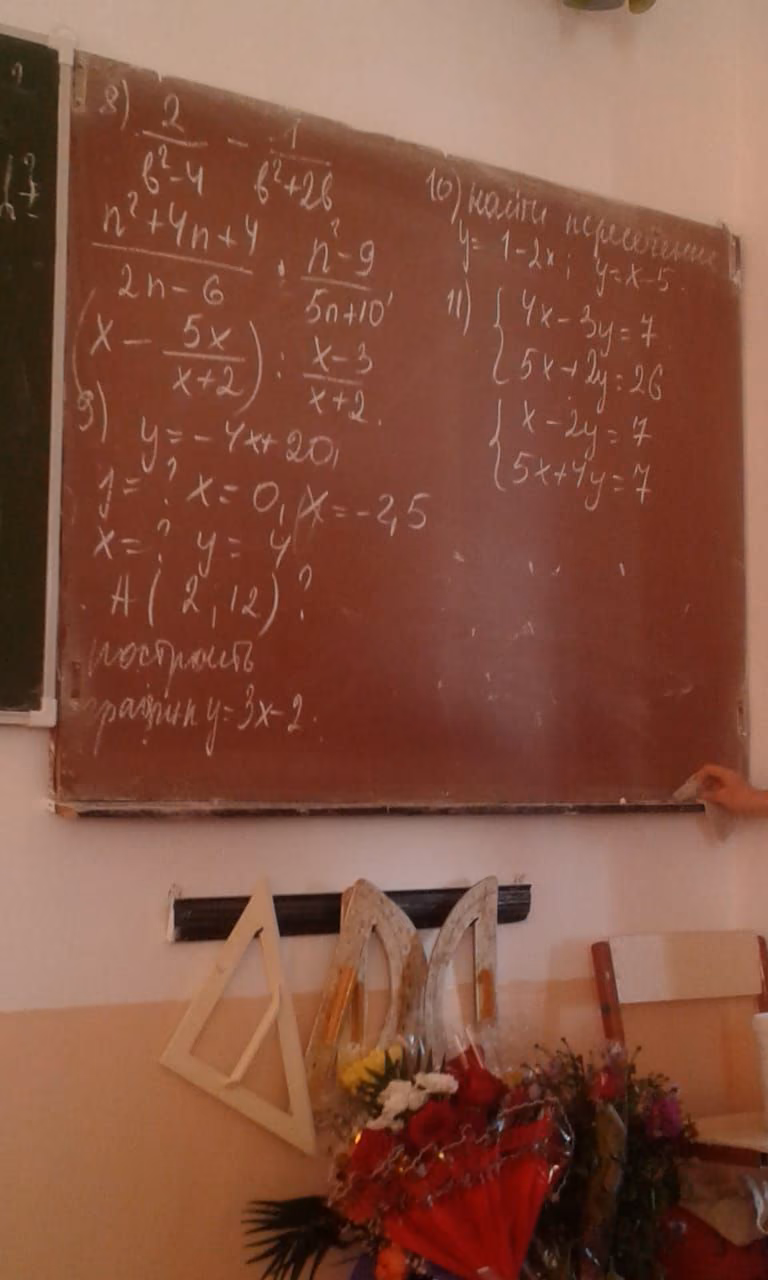 8) 2/(b²-4) - 1/(b²+2b)
(n²+4n+4)/(2n-6) : (n²-9)/(5n+10)
(x - 5x/(x+2)) : (x-3)/(x+2).
9) y=-4x+20,
y=? x=0, x=-2,5
x=? y=4
A(2,12)?
построить
график y=3x-2.
10) найти пересечение
y=1-2x; y=x-5.
11) { 4x-3y=7
5x+2y=26
{ x-2y=7
5x+4y=7